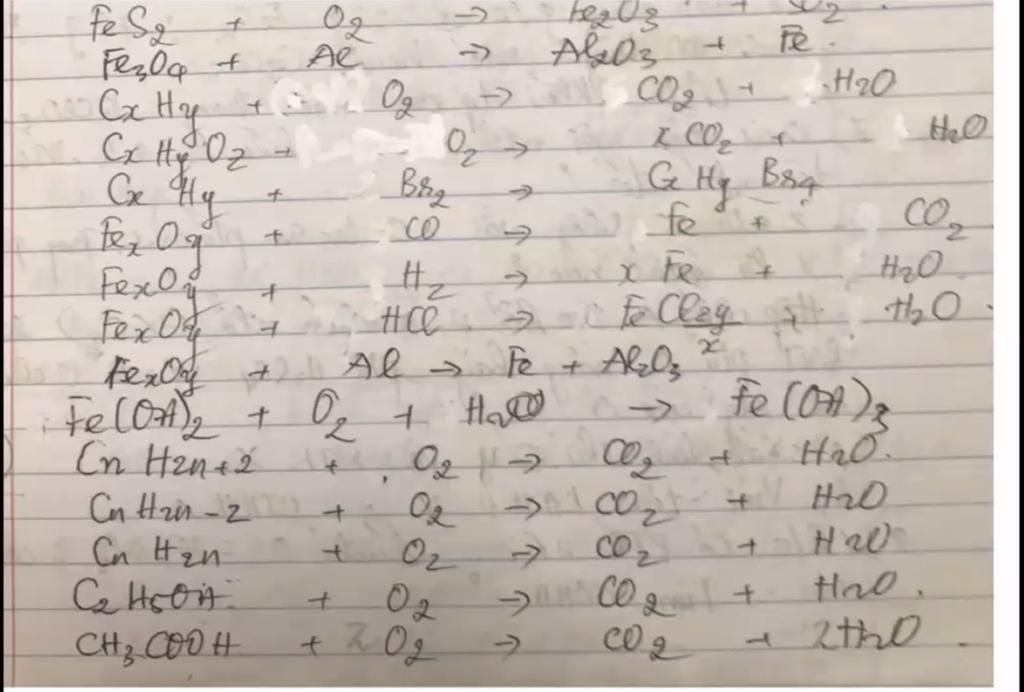 FeS2 + O2 → Fe2O3 + O2
Fe3O4 + Al → Al2O3 + Fe.
CxHy + O2 → CO2 + H2O
CxHyOz + O2 → xCO2 + H2O
CxHy + Br2 → CxHyBr4
FexOy + CO → Fe + CO2
FexOy + H2 → xFe + H2O
FexOy + HCl → FeCl2y/x + H2O.
FexOy + Al → Fe + Al2O3
Fe(OH)2 + O2 + H2O → Fe(OH)3
CnH2n+2 + O2 → CO2 + H2O.
CnH2n-2 + O2 → CO2 + H2O
CnH2n + O2 → CO2 + H2O
C2H5OH + O2 → CO2 + H2O.
CH3COOH + 2O2 → CO2 + 2H2O.